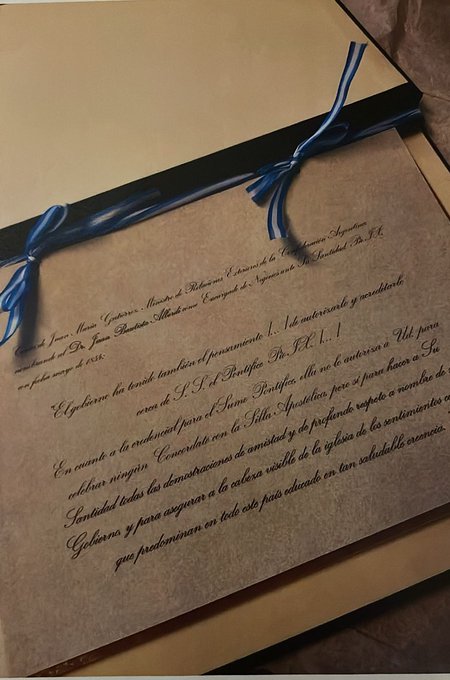 Carta de Juan María Gutiérrez, Ministro de Relaciones Exteriores de la Confederación Argentina
nombrando al Dr. Juan Bautista Alberdi como Encargado de Negocios ante Su Santidad Pío IX
con fecha mayo de 1856:
"El gobierno ha tenido también el pensamiento [...] de autorizarlo y acreditarlo
cerca de S. S. el Pontífice Pío IX. [...]
En cuanto a la credencial para el Sumo Pontífice, ella no lo autoriza a Ud. para
celebrar ningún Concordato con la Silla Apostólica pero sí para hacer a Su
Santidad todas las demostraciones de amistad y de profundo respeto a nombre de
Gobierno, y para asegurar a la cabeza visible de la iglesia de los sentimientos
que predominan en todo este país educado en tan saludable creencia.